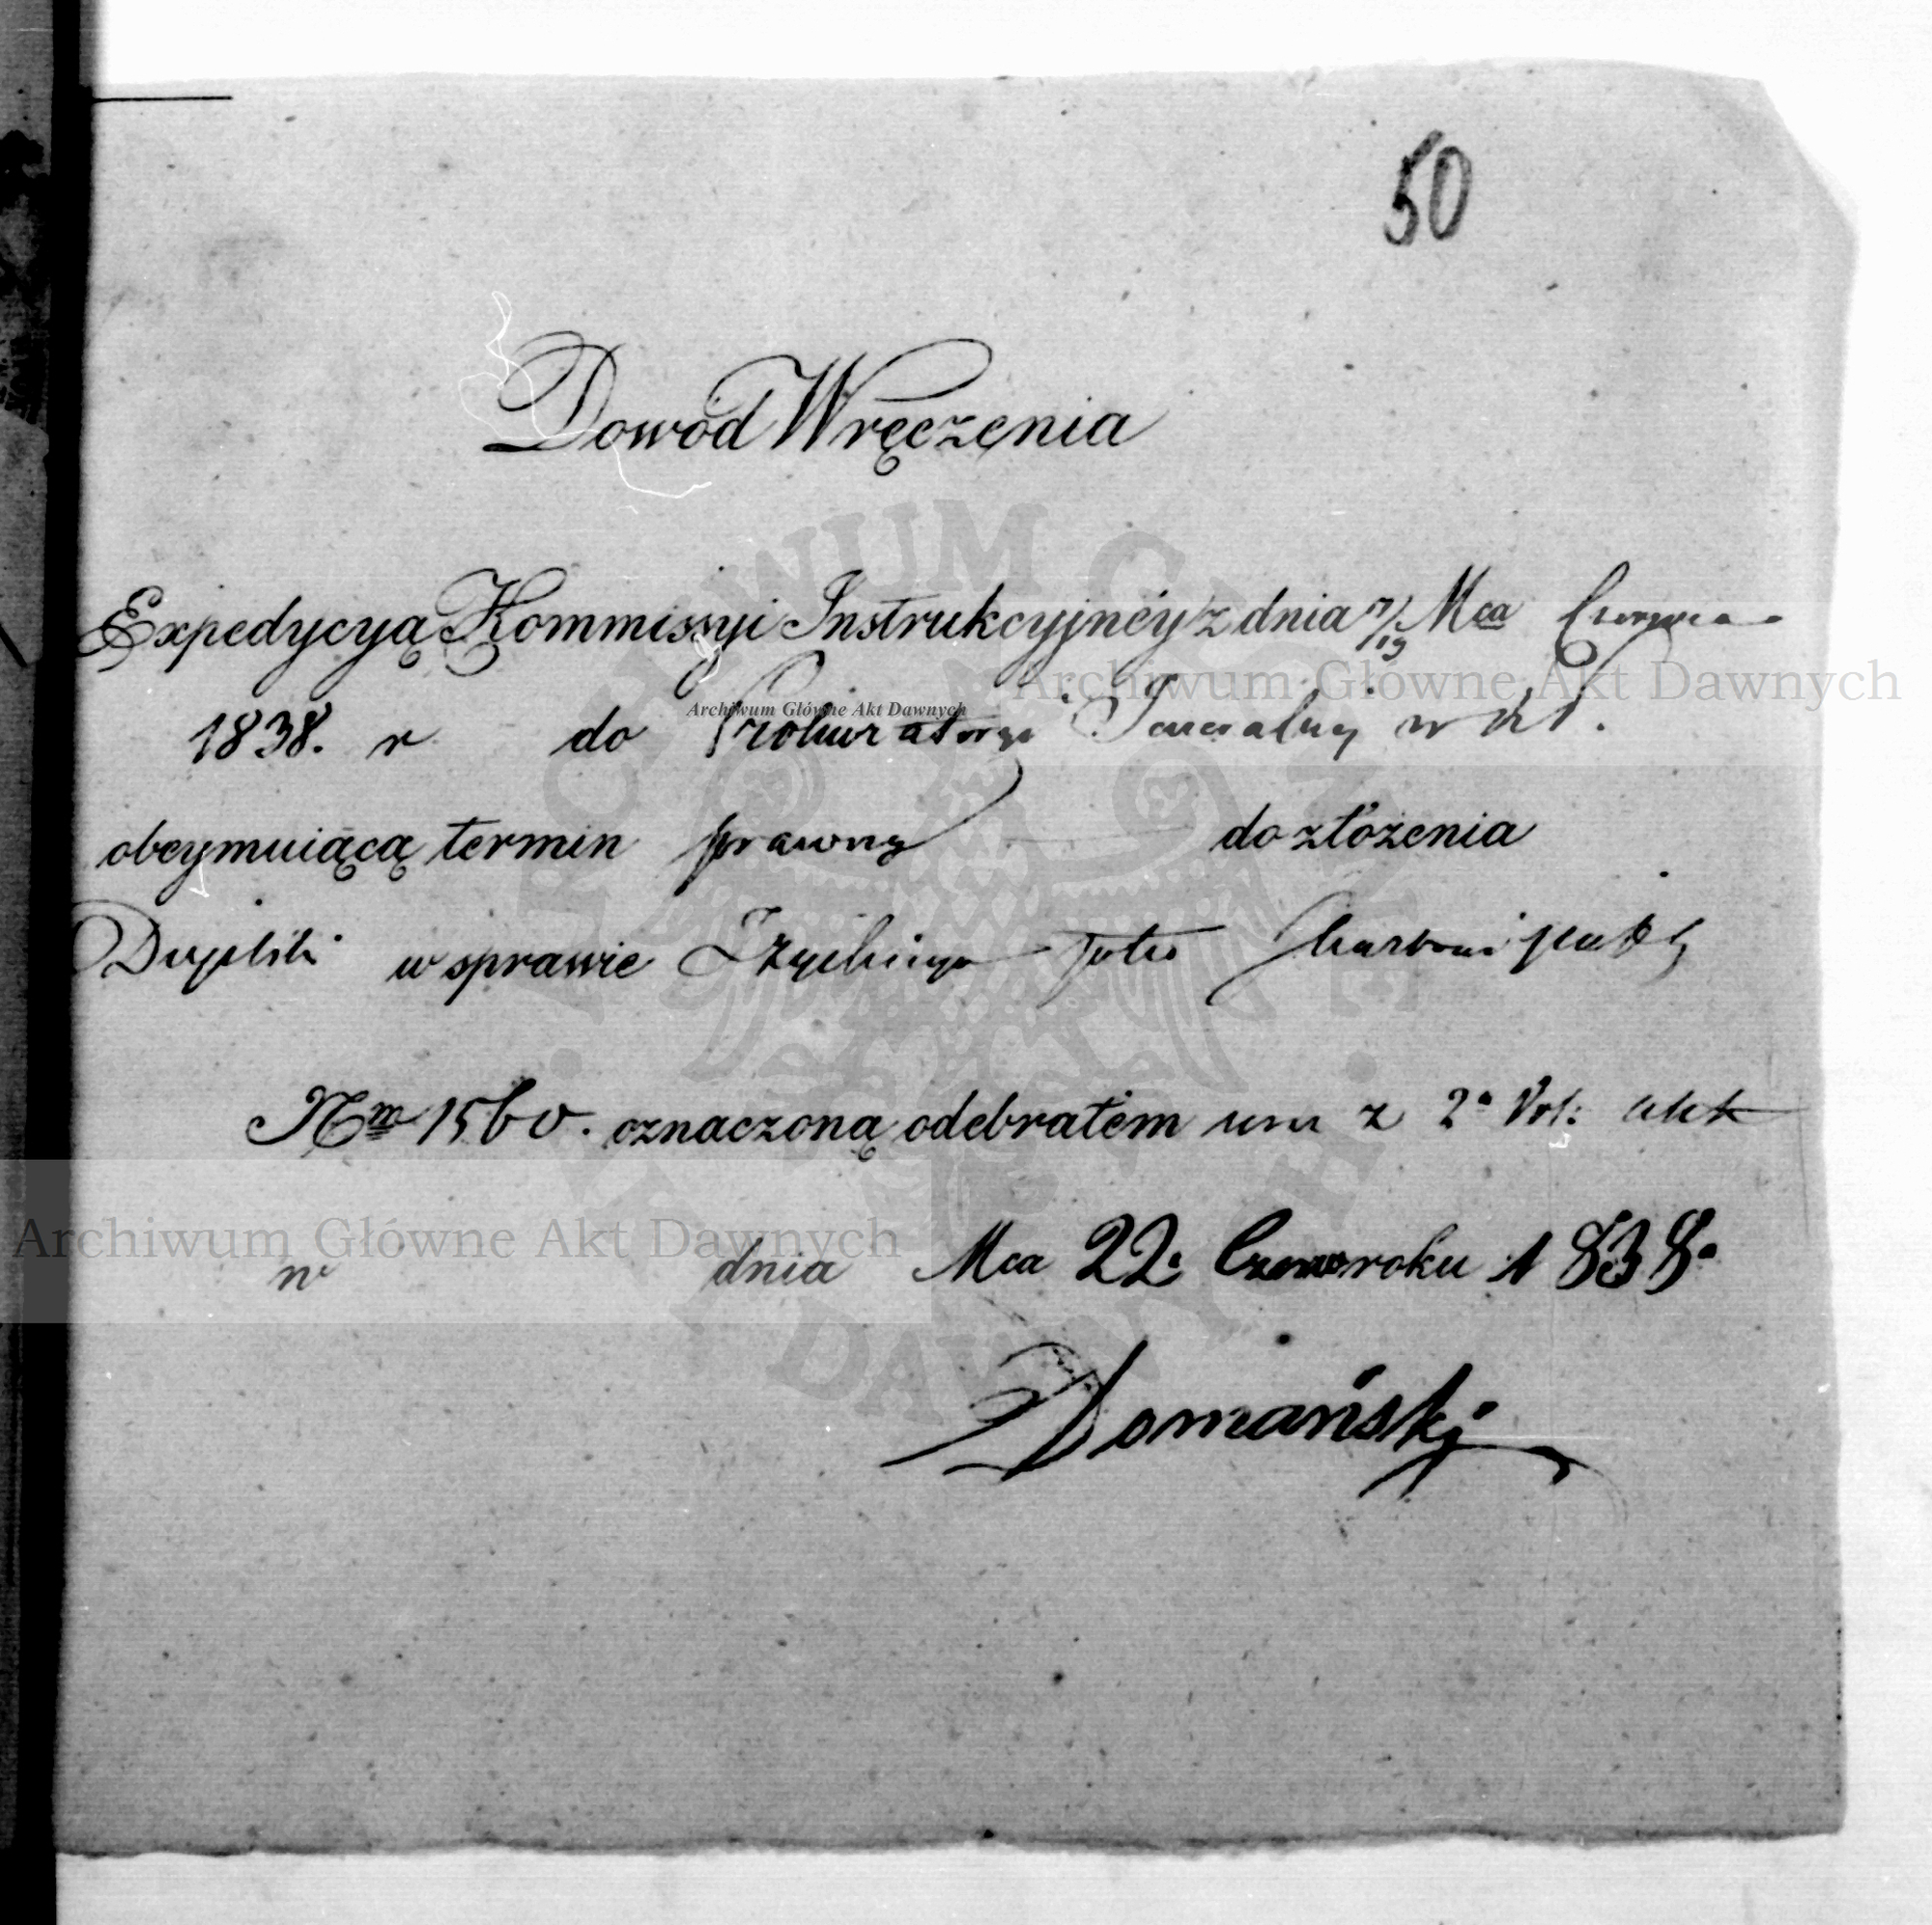 50
Dowód Wręczenia
Expedycyą Kommissyi Instrukcyjnéy z dnia 7/19 Mca Czerwca
1838. r do Prokuratoryi Jeneralnej w Kr.
obeymuiącą termin prawny do złożenia
Dupliki w sprawie
Nro 1560. oznaczoną odebrałem z 2a Vol: akt
w dnia Mca 22. Czerw roku 1838.
Domański
Archiwum Główne Akt Dawnych
Archiwum Główne Akt Dawnych
Archiwum Główne Akt Dawnych